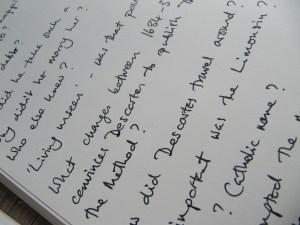 did he take such a
didn't he marry her?
Who else knew?
'Living unseen' - was that
What changes between 1634-5
convinces Descartes to publish
The Method?
did Descartes travel around?
important was the Limousin?
? (Catholic name?
The